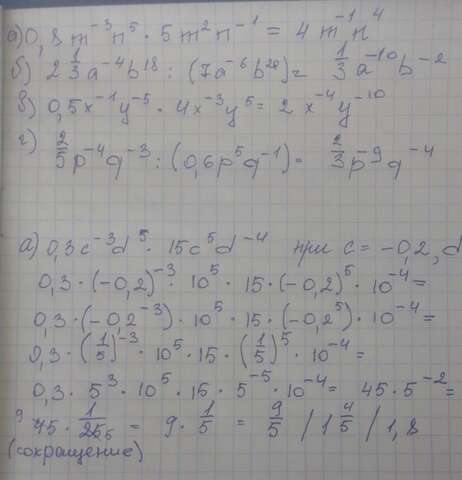 а) 0,8m⁻³n⁵ · 5m²n⁻¹ = 4m⁻¹n⁴
б) 2 1/3 a⁻⁴b¹⁸ : (7a⁻⁶b²⁰) = 1/3 a⁻¹⁰b⁻²
в) 0,5x⁻¹y⁻⁵ · 4x⁻³y⁵ = 2x⁻⁴y⁻¹⁰
г) 2/5 p⁻⁴q⁻³ : (0,6p⁵q⁻¹) = 2/3 p⁻⁹q⁻⁴
а) 0,3c⁻³d⁵ · 15c⁵d⁻⁴ при c = -0,2, d
0,3 · (-0,2)⁻³ · 10⁵ · 15 · (-0,2)⁵ · 10⁻⁴ =
0,3 · (-0,2⁻³) · 10⁵ · 15 · (-0,2⁵) · 10⁻⁴ =
0,3 · (1/5)⁻³ · 10⁵ · 15 · (1/5)⁵ · 10⁻⁴ =
0,3 · 5³ · 10⁵ · 15 · 5⁻⁵ · 10⁻⁴ = 45 · 5⁻² =
⁹45 · 1/25₅ = 9 · 1/5 = 9/5 / 1 4/5 / 1,8
(сокращение)